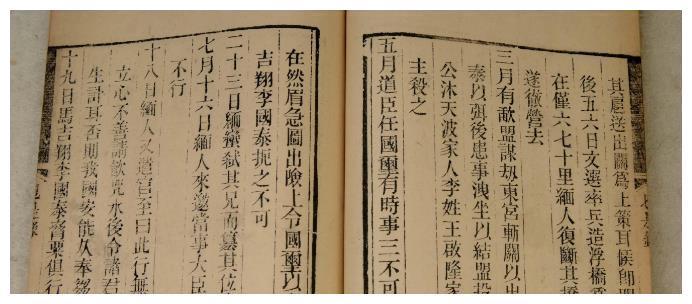 其扈送出關爲上策耳候郎
後五六日文選率兵造浮橋
在僅六七十里緬人復斷其橋
遂徹營去
三月有歃盟謀刼東宮斬關以出
泰以强後患事洩坐以結盟投
公沐天波家人李姓王啟隆家
主殺之
五月道臣任國璽有時事三不可
在然眉急圖出險上令國璽以
吉翔李國泰扼之不可
二十三日緬蠻弑其兄而簒其位
七月十六日緬人來邀當事大臣
不行
十八日緬人又遣官至曰此行
立心不善請飲咒水後令諸君
生計其否則我國安能久奉芻
十九日馬吉翔李國泰齊衆俱行